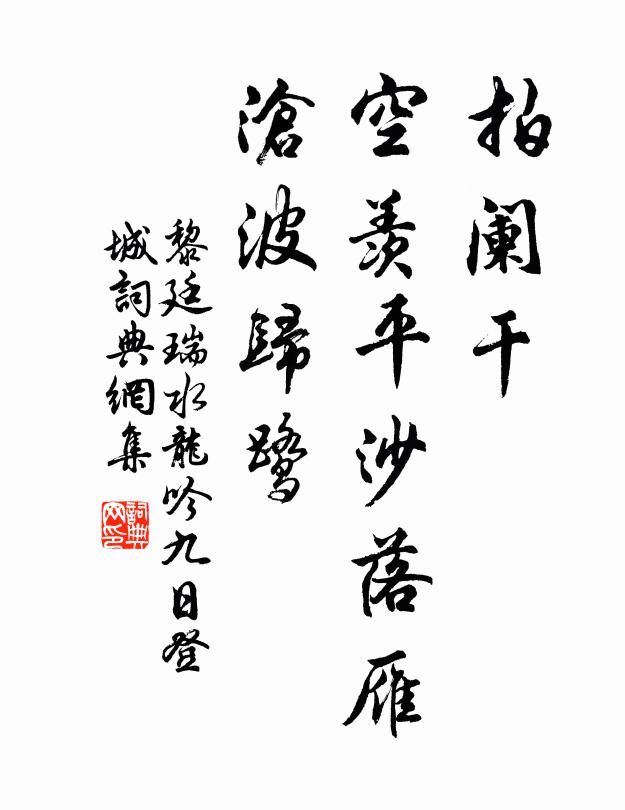 拍阑干
空羡平沙落雁
滄波歸鹭
黎廷瑞水龍吟九日登
城詞典網集
詞典网印